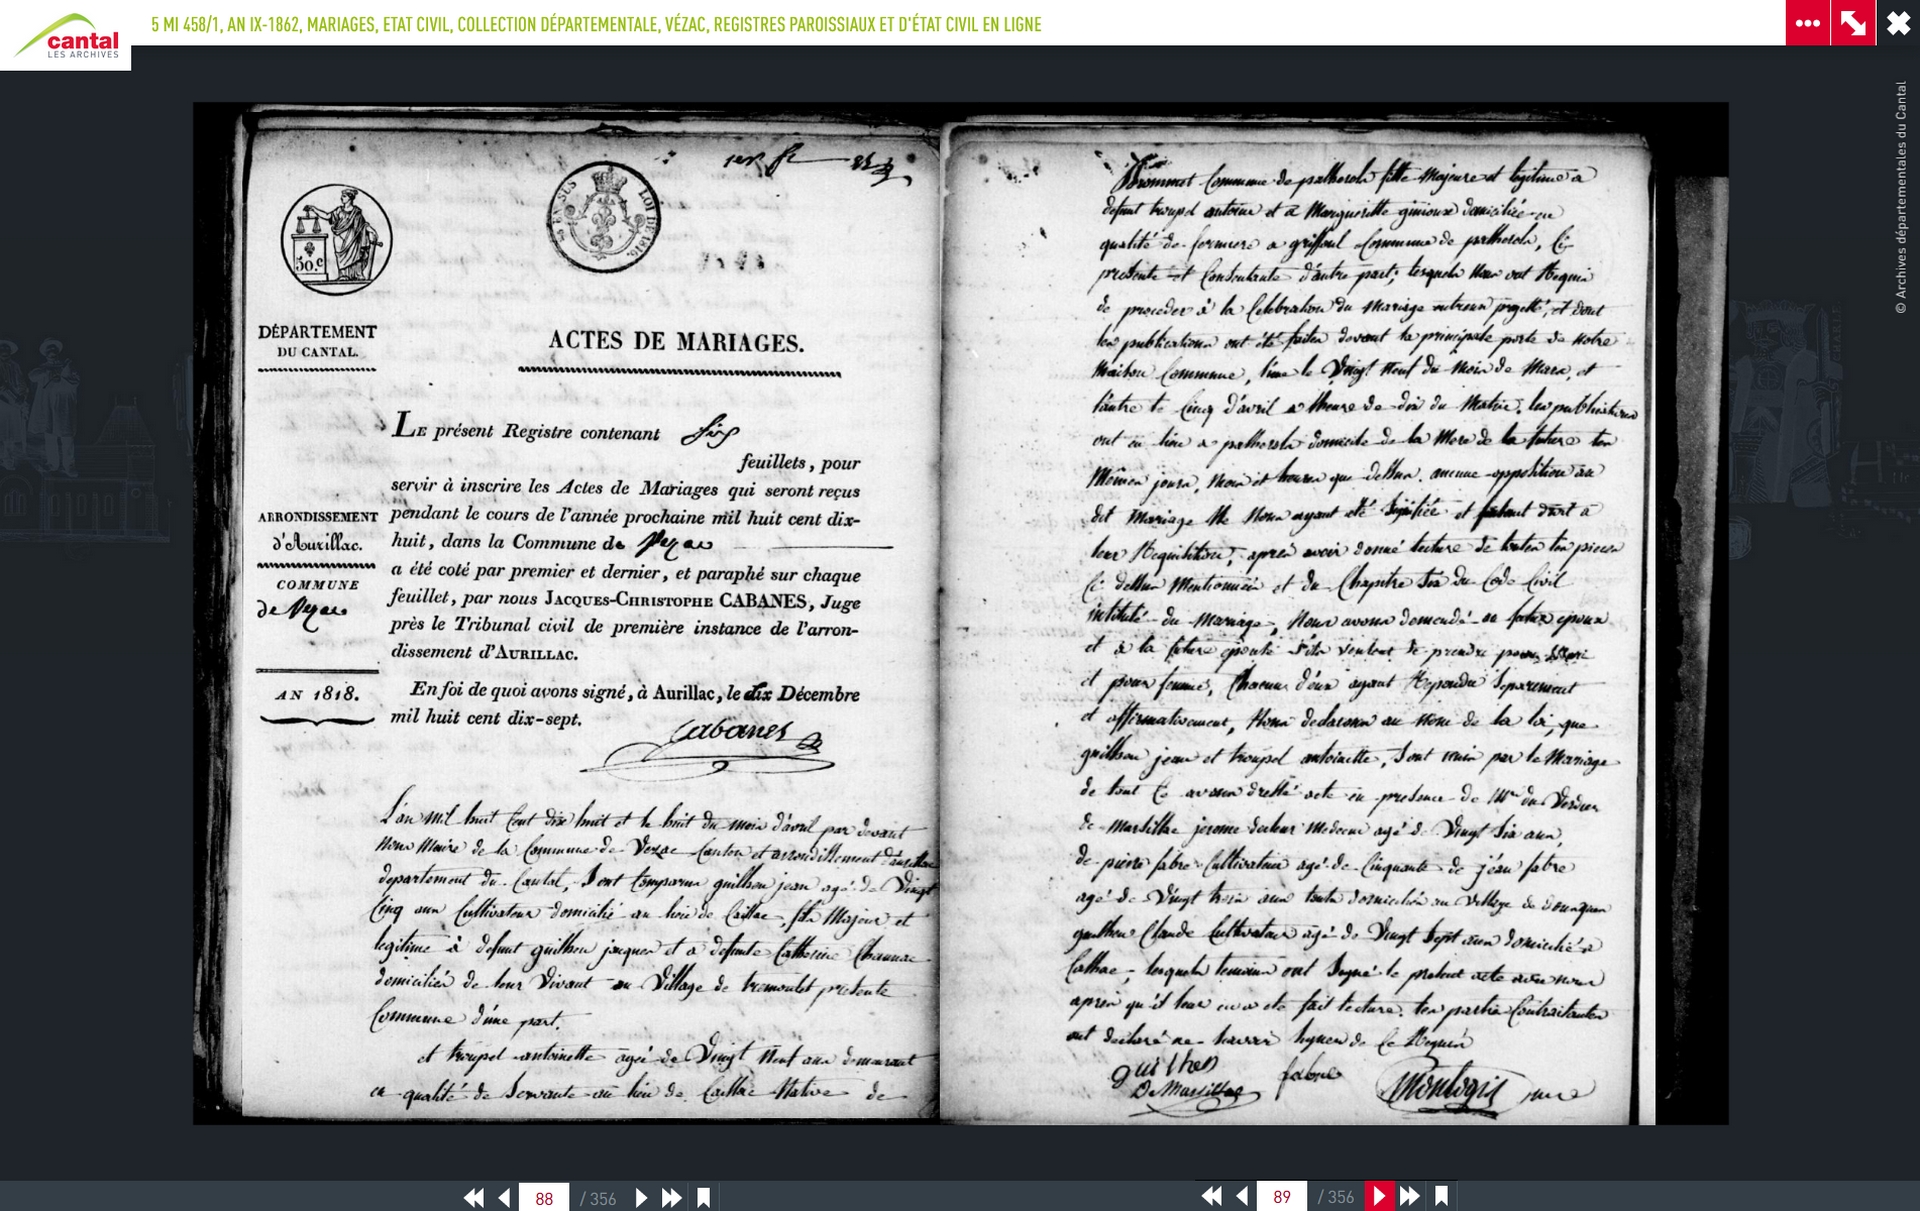 5 MI 458/1, AN IX-1862, MARIAGES, ETAT CIVIL, COLLECTION DÉPARTEMENTALE, VÉZAC, REGISTRES PAROISSIAUX ET D'ÉTAT CIVIL EN LIGNE
cantal
LES ARCHIVES
© Archives départementales du Cantal
50.c
LOI DE 1816.
DÉPARTEMENT
DU CANTAL.
ACTES DE MARIAGES.
LE présent Registre contenant six
feuillets, pour
servir à inscrire les Actes de Mariages qui seront reçus
pendant le cours de l'année prochaine mil huit cent dix-
huit, dans la Commune de Vezac
a été coté par premier et dernier, et paraphé sur chaque
feuillet, par nous JACQUES-CHRISTOPHE CABANES, Juge
près le Tribunal civil de première instance de l'arron-
dissement d'AURILLAC.
ARRONDISSEMENT
d'Aurillac.
COMMUNE
de Vezac
AN 1818.
En foi de quoi avons signé, à Aurillac, le dix Décembre
mil huit cent dix-sept.
Cabanes
L'an mil huit Cent dix huit et le huit du mois d'avril par devant
Nous Maire de la Commune de Vezac Canton et arrondissement d'aurillac
departement du Cantal, Sont Comparus guilhen jean agé de Vingt
Cinq ans Cultivateur domicilié au lieu de Caillac, fils Majeur et
legitime à defunt guilhen jacques et a defunte Catherine Chaunac
domiciliés de leur Vivant au Village de tremoulet presente
Commune d'une part.
et troupel antoinette agée de Vingt Neuf ans demeurant
en qualité de Servante au lieu de Caillac Native de
Commune de palherols fille Majeure et legitime a
defunt troupel antoine et a Margueritte ginioux domiciliée en
qualité de fermiere a griffoul Commune de palherols, Ci
presente et Consentante d'autre part; lesquels Nous ont Requis
de proceder à la Celebration du Mariage entreux projetté, et dont
les publications ont été faites devant la principale porte de Notre
Maison Commune, l'une le Vingt Neuf du Mois de Mars, et
l'autre le Cinq d'avril a l'heure de dix du Matin, les publications
ont eu lieu a palherols domicile de la Mere de la future les
Mêmes jours, Mois et heures que dessus. aucune opposition au
dit Mariage Ne Nous ayant eté Signifiée et faisant droit a
leur Requisition, après avoir donné lecture de toutes les pieces
Ci dessus Mentionnées et du Chapitre Six du Code Civil
intitulé du Mariage, Nous avons demandé au futur epoux
et à la future epouse S'ils veulent Se prendre pour Mari
et pour femme, Chacun d'eux ayant Repondu Separement
et affirmativement, Nous declarons au Nom de la loi, que
guilhen jean et troupel antoinette, Sont unis par le Mariage
de tout Ce avons dressé acte en presence de Mr du Verdier
de Marsillac jerome docteur Medecin agé de Vingt Six ans,
de pierre fabre Cultivateur agé de Cinquante de jean fabre
agé de Vingt trois ans touts domiciliés au Village de
guilhen Claude Cultivateur agé de Vingt Sept ans domicilié a
Caillac, lesquels temoins ont Signé le present acte avec nous
apres qu'il leur en a eté fait lecture. les parties Contractantes
ont declaré ne Savoir Signer de Ce Requis
guilhen
De Marsillac
fabre
Monlogis maire
88 / 356
89 / 356